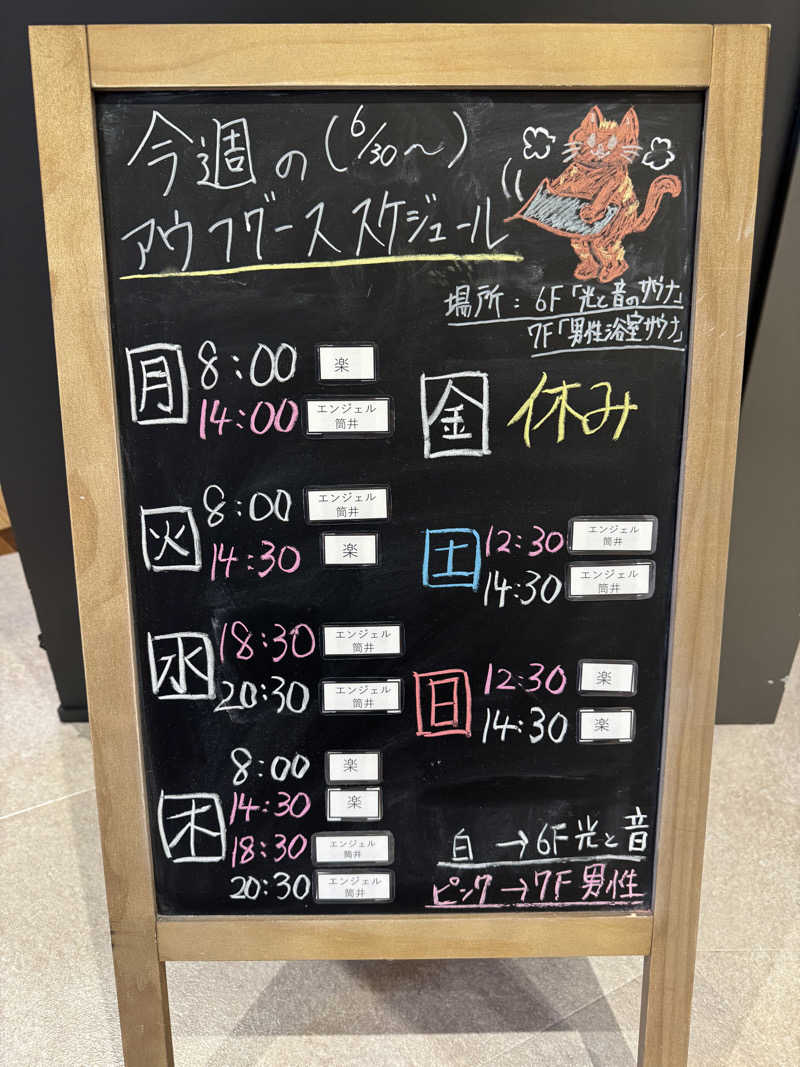 今週の(6/30〜)
アウフグーススケジュール
場所:6F「光と音のサウナ」
7F「男性浴室サウナ」
月
8:00 楽
14:00 エンジェル
筒井
火
8:00 エンジェル
筒井
14:30 楽
水
18:30 エンジェル
筒井
20:30 エンジェル
筒井
木
8:00 楽
14:30 楽
18:30 エンジェル
筒井
20:30 エンジェル
筒井
金 休み
土
12:30 エンジェル
筒井
14:30 エンジェル
筒井
日
12:30 楽
14:30 楽
白→6F光と音
ピンク→7F男性